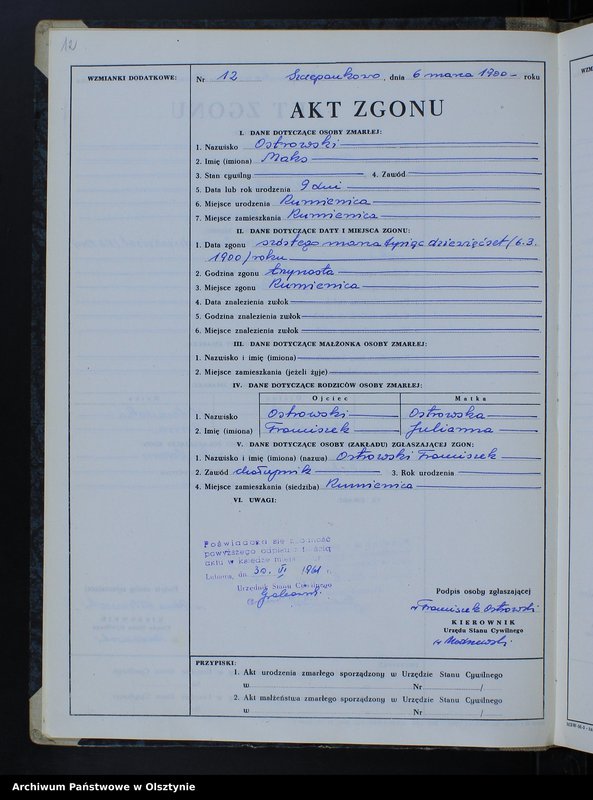 12
WZMIANKI DODATKOWE:
Nr 12 Szczepankowo, dnia 6 marca 1900 – roku
AKT ZGONU
I. DANE DOTYCZĄCE OSOBY ZMARŁEJ:
1. Nazwisko Ostrowski
2. Imię (imiona) Maks
3. Stan cywilny 4. Zawód
5. Data lub rok urodzenia 9 dni
6. Miejsce urodzenia Rumienica
7. Miejsce zamieszkania Rumienica
II. DANE DOTYCZĄCE DATY I MIEJSCA ZGONU:
1. Data zgonu szóstego marca tysiąc dziewięćset /6.3.
1900/ roku
2. Godzina zgonu trzynasta
3. Miejsce zgonu Rumienica
4. Data znalezienia zwłok
5. Godzina znalezienia zwłok
6. Miejsce znalezienia zwłok
III. DANE DOTYCZĄCE MAŁŻONKA OSOBY ZMARŁEJ:
1. Nazwisko i imię (imiona)
2. Miejsce zamieszkania (jeżeli żyje)
IV. DANE DOTYCZĄCE RODZICÓW OSOBY ZMARŁEJ:
Ojciec Matka
1. Nazwisko Ostrowski Ostrowska
2. Imię (imiona) Franciszek Julianna
V. DANE DOTYCZĄCE OSOBY (ZAKŁADU) ZGŁASZAJĄCEJ ZGON:
1. Nazwisko i imię (imiona) (nazwa) Ostrowski Franciszek
2. Zawód chałupnik 3. Rok urodzenia
4. Miejsce zamieszkania (siedziba) Rumienica
VI. UWAGI:
Poświadcza się zgodność
powyższego odpisu z treścią
aktu w księdze
Lubawa, dn. 30. VI 1961 r.
Urzędnik Stanu Cywilnego
Podpis osoby zgłaszającej
Franciszek Ostrowski
KIEROWNIK
Urzędu Stanu Cywilnego
PRZYPISKI:
1. Akt urodzenia zmarłego sporządzony w Urzędzie Stanu Cywilnego
w Nr /
2. Akt małżeństwa zmarłego sporządzony w Urzędzie Stanu Cywilnego
w Nr /
Archiwum Państwowe w Olsztynie